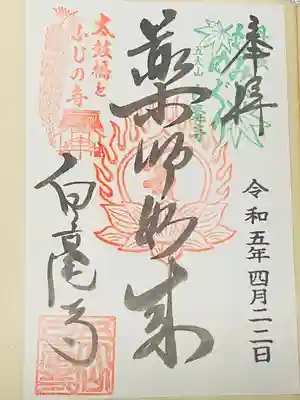 奉拝
令和五年四月二二日
めぐり
五大山
白毫寺
薬師如来
太鼓橋と
ふじの寺
白毫寺